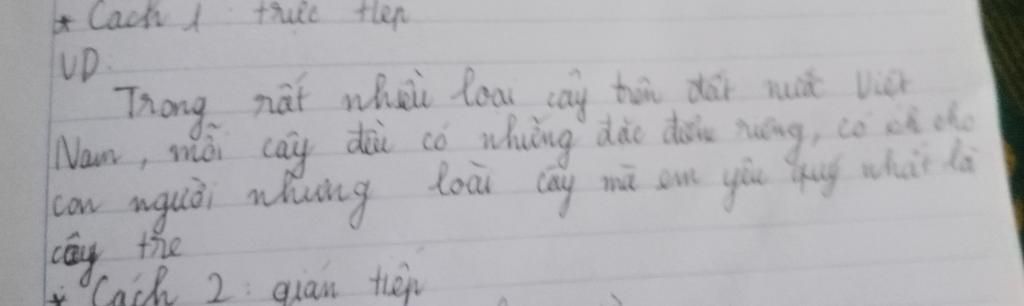 * Cách 1: trực tiếp
VD:
Trong rất nhiều loài cây trên đất nước Việt
Nam, mỗi cây đều có những đặc điểm riêng, có ích cho
con người nhưng loài cây mà em yêu quý nhất là
cây tre
* Cách 2: gián tiếp